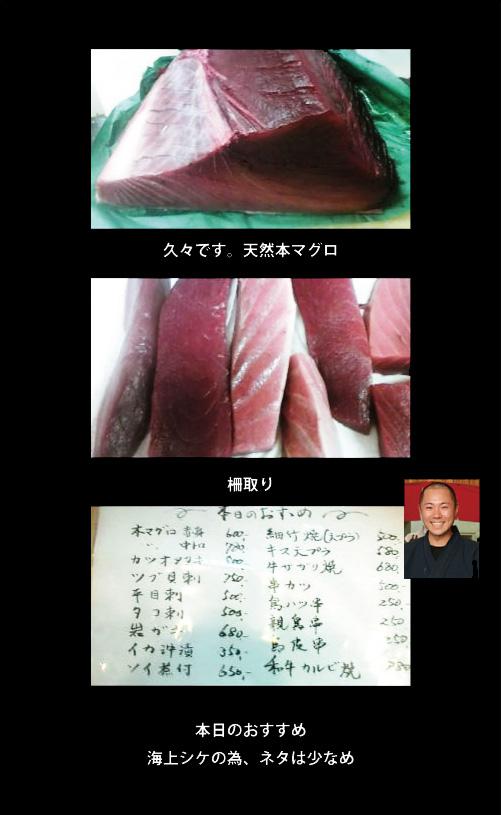 久々です。天然本マグロ
柵取り
本日のおすすめ
本マグロ 赤身 600.-
〃 中トロ 700
カツオタタキ 500
ツブ貝刺 750.-
平目刺 500.-
タコ刺 500.-
岩ガキ 680.-
イカ沖漬 350.-
ソイ煮付 650.-
細竹焼(天プラ) 500.-
キス天プラ 580
牛サガリ焼 680.
串カツ 500.-
鳥ハツ串 250.-
親鳥串 250
鳥皮串 250
和牛カルビ焼
本日のおすすめ
海上シケの為、ネタは少なめ